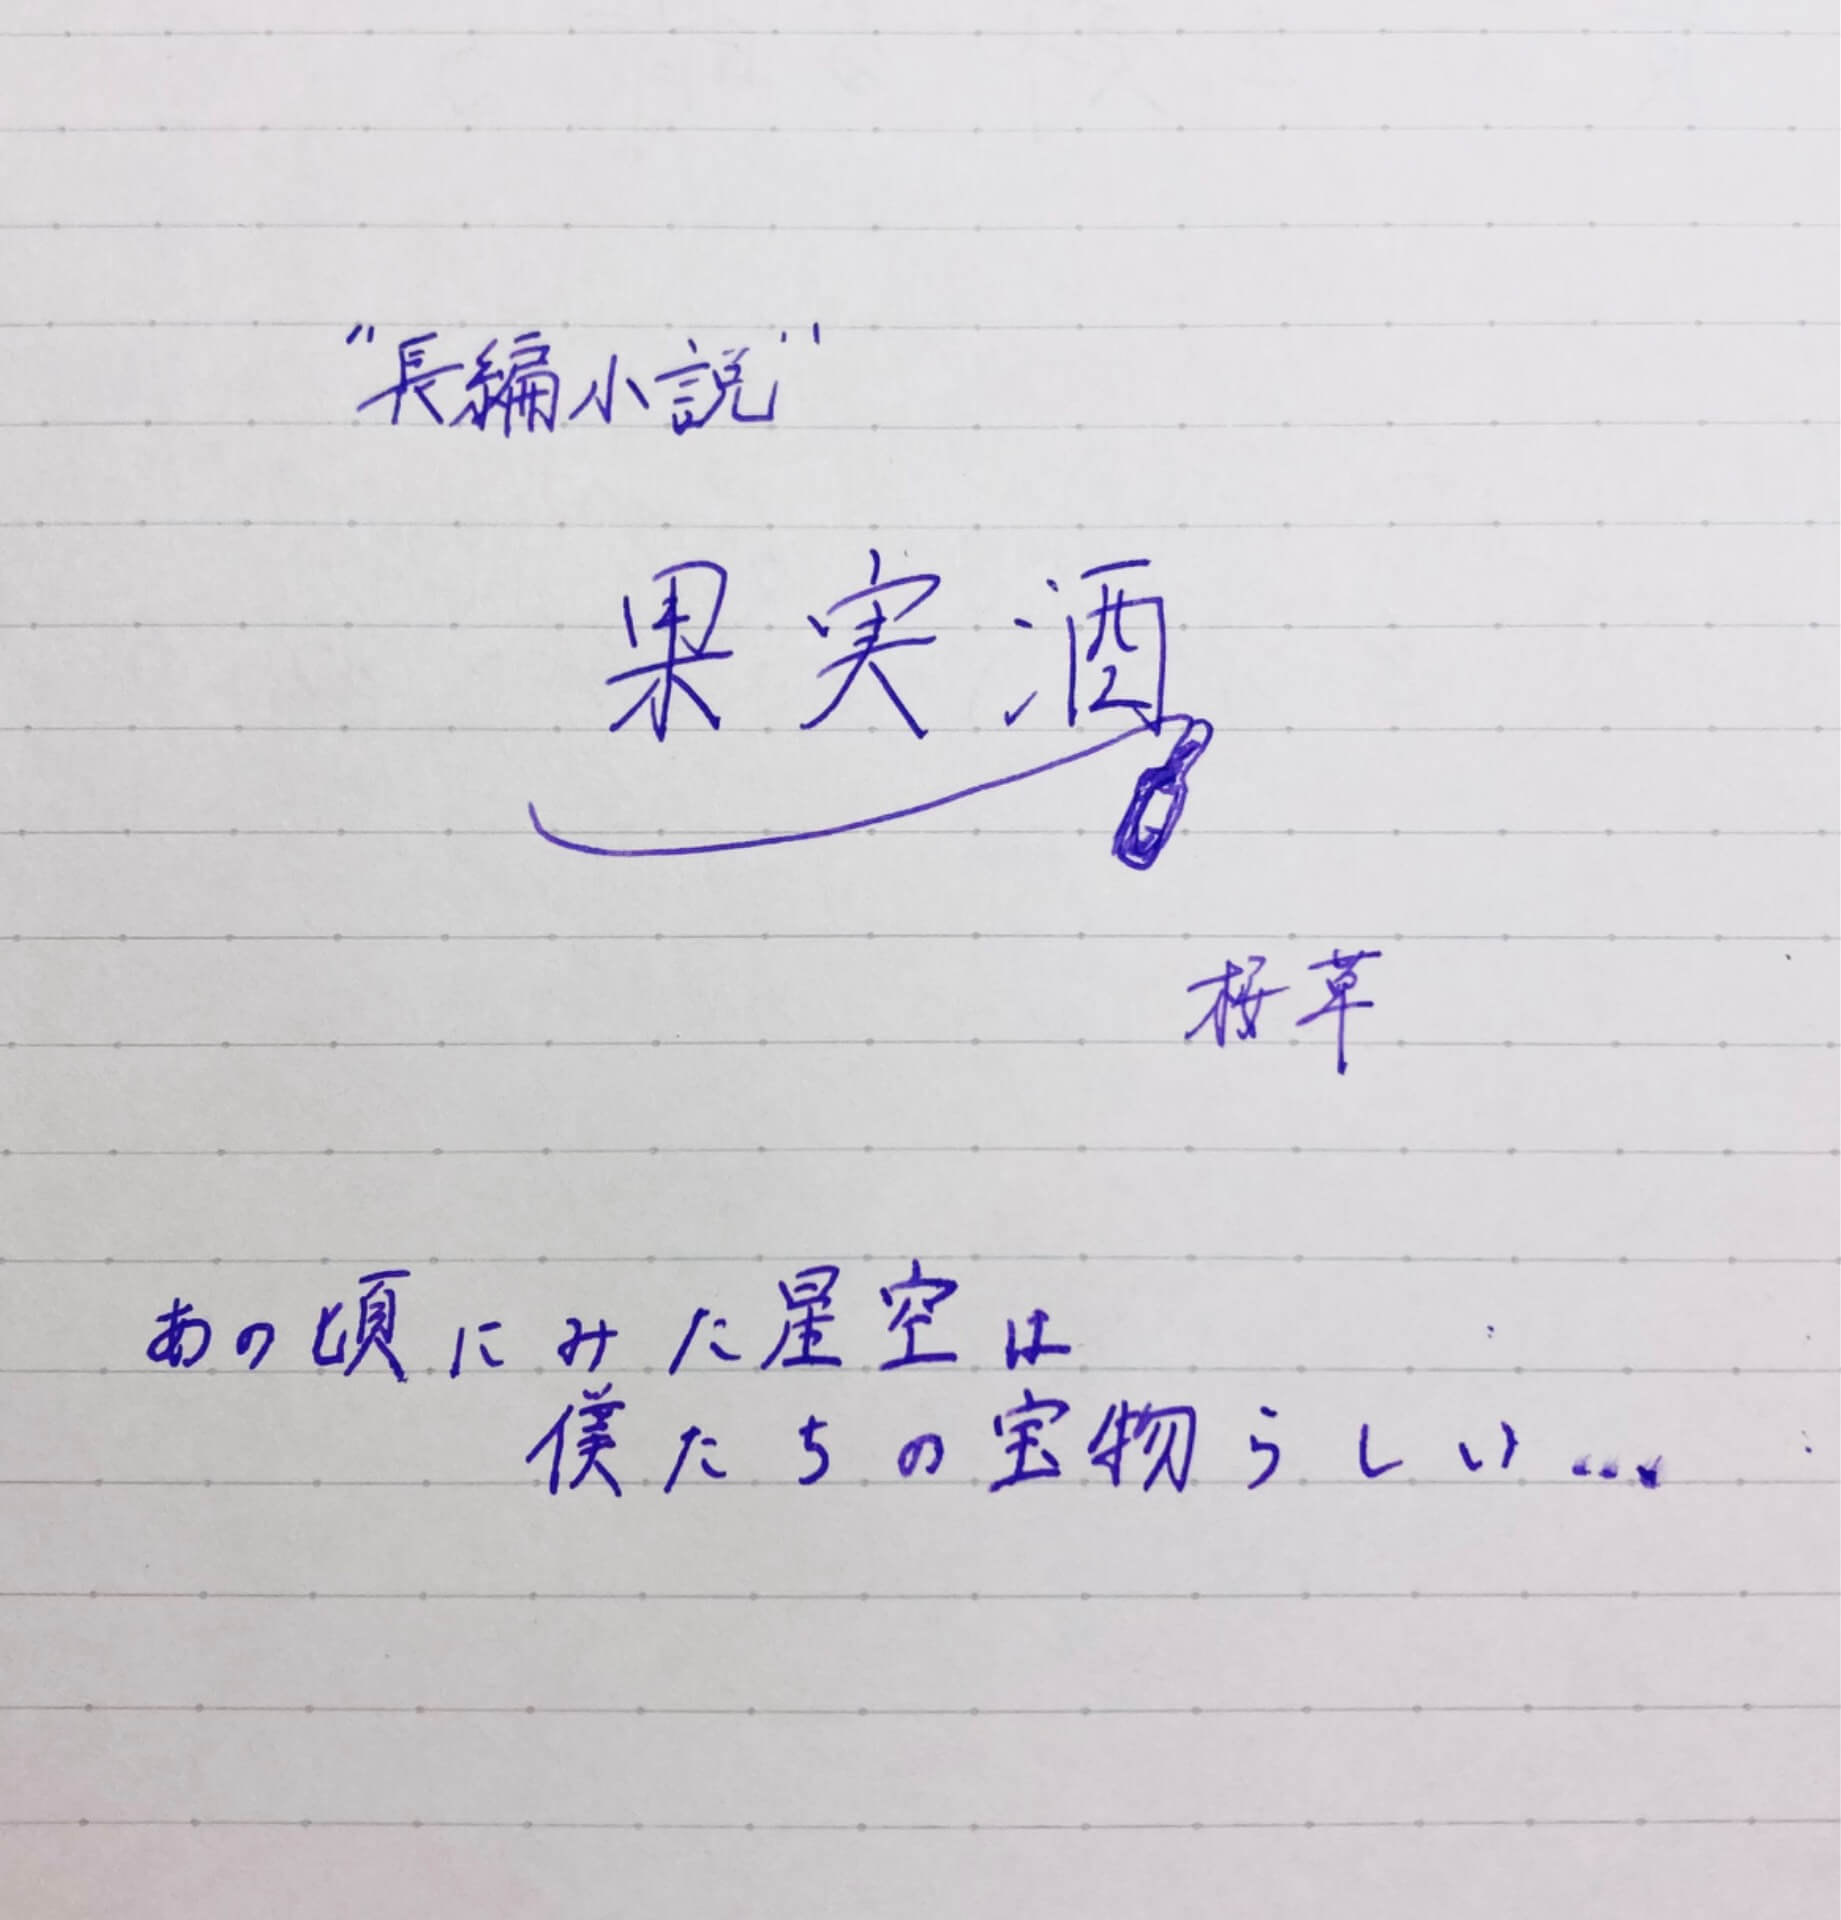 "長編小説"
果実酒
桜草
あの頃にみた星空は
僕たちの宝物らしい...